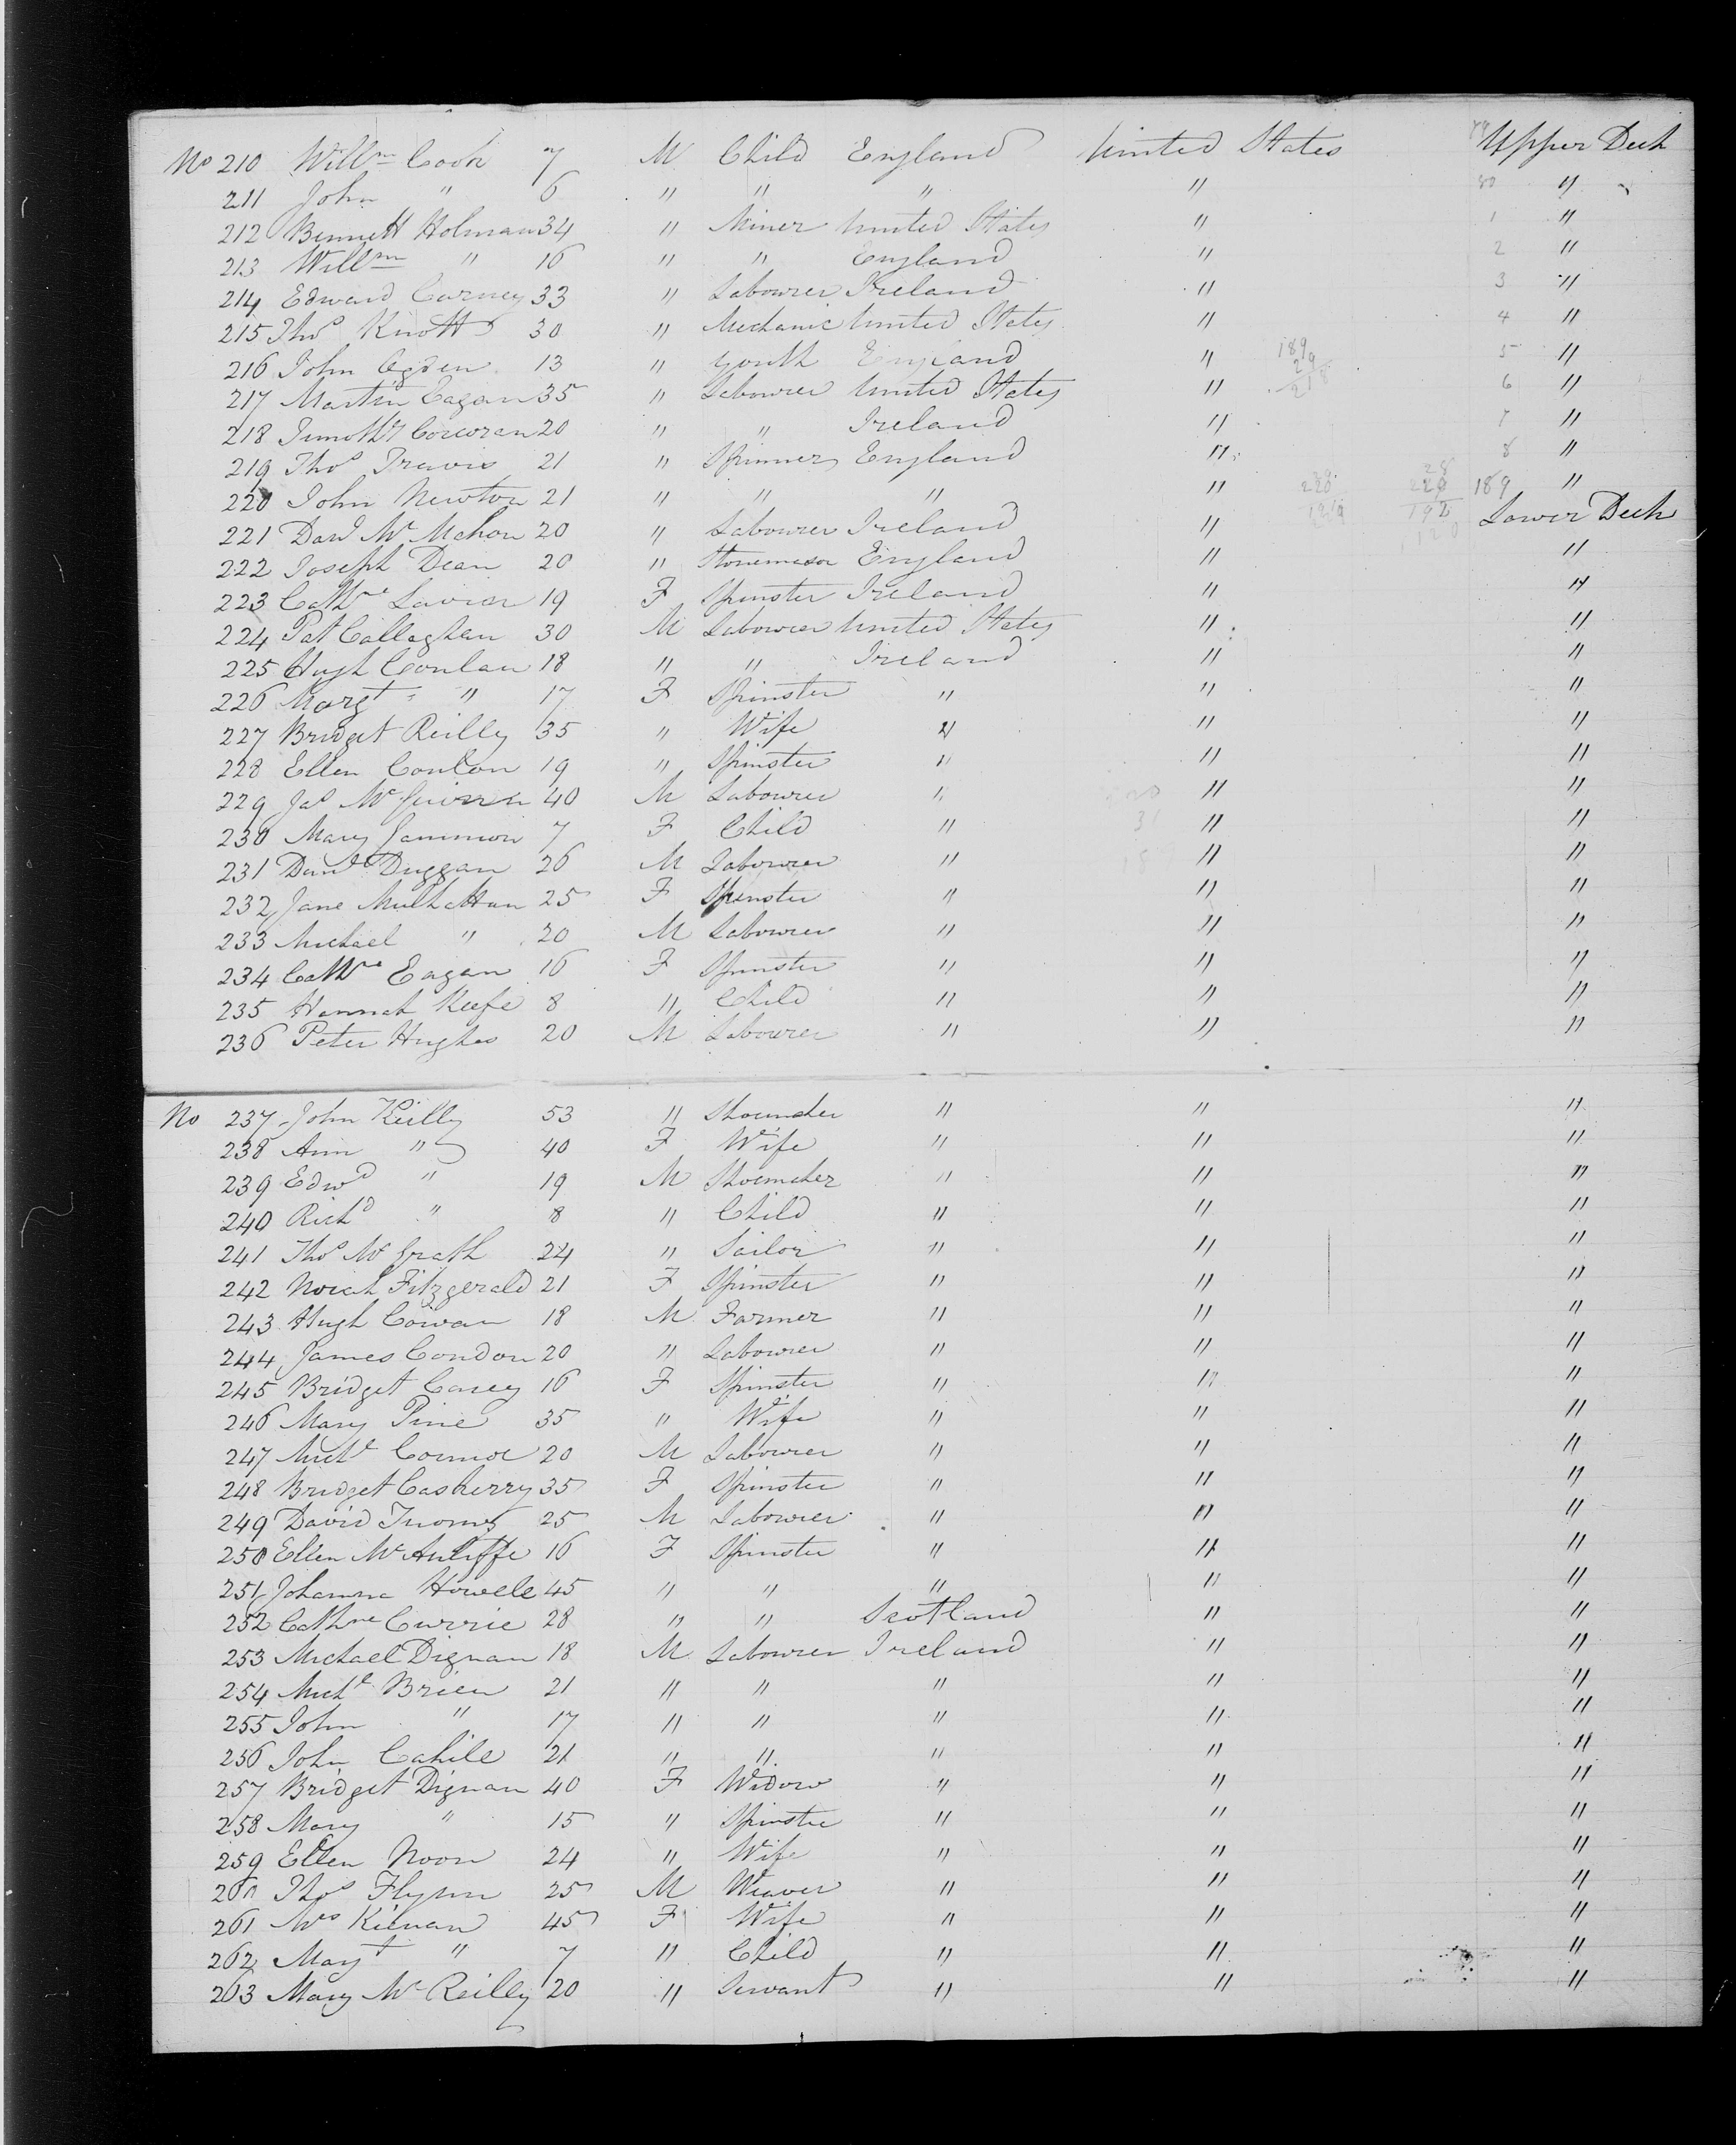 No 210 Willm Cook 7 M Child England United States Upper Deck
211 John " 6 " " " " 80 "
212 Bennett Holman 34 " Miner United States " 1 "
213 Willm " 16 " " England " 2 "
214 Edward Carney 33 " Labourer Ireland " 3 "
215 Thos Knott 30 " Mechanic United States " 4 "
216 John Ogden 13 " youth England " 5 "
217 Martin Eagan 35 " Labourer United States " 6 "
218 Timothy Corcoran 20 " " Ireland " 7 "
219 Thos Travis 21 " Spinner England " 8 "
220 John Newton 21 " " " " 189 "
221 Danl Mc Mahon 20 " Labourer Ireland " Lower Deck
222 Joseph Dean 20 " Stonemason England " "
223 Cathne 19 F Spinster Ireland " "
224 Pat Callaghan 30 M Labourer United States " "
225 Hugh Conlan 18 " " Ireland " "
226 Margt " 17 F Spinster " " "
227 Bridget Reilly 35 " Wife " " "
228 Ellen Conlon 19 " Spinster " " "
229 Jas Mc Guinn 40 M Labourer " " "
230 Mary Gammon 7 F Child " " "
231 Danl Duggan 26 M Labourer " " "
232 Jane Mulhattan 25 F Spinster " " "
233 Michael " 20 M Labourer " " "
234 Cathne Eagan 16 F Spinster " " "
235 Hannah Keefe 8 " Child " " "
236 Peter Hughes 20 M Labourer " " "
No 237 John Reilly 53 " Shoemaker " " "
238 Ann " 40 F Wife " " "
239 Edwd " 19 M Shoemaker " " "
240 Richd " 8 " Child " " "
241 Thos Mc Grath 24 " Sailor " " "
242 Norah Fitzgerald 21 F Spinster " " "
243 Hugh Cowan 18 M Farmer " " "
244 James Condon 20 " Labourer " " "
245 Bridget Carey 16 F Spinster " " "
246 Mary Pine 35 " Wife " " "
247 Michl Connor 20 M Labourer " " "
248 Bridget Caskerry 35 F Spinster " " "
249 David Twomy 25 M Labourer " " "
250 Ellen Mc Auliffe 16 F Spinster " " "
251 Johanna Howell 45 " " " " "
252 Cathne Currie 28 " " Scotland " "
253 Michael Dignan 18 M Labourer Ireland " "
254 Michl Brien 21 " " " " "
255 John " 17 " " " " "
256 John Cahill 21 " " " " "
257 Bridget Dignan 40 F Widow " " "
258 Mary " 15 " Spinster " " "
259 Ellen Noon 24 " Wife " " "
260 Thos Flynn 25 M Weaver " " "
261 Mrs Kienan 45 F Wife " " "
262 Mary " 7 " Child " " "
263 Mary Mc Reilly 20 " Servant " " "